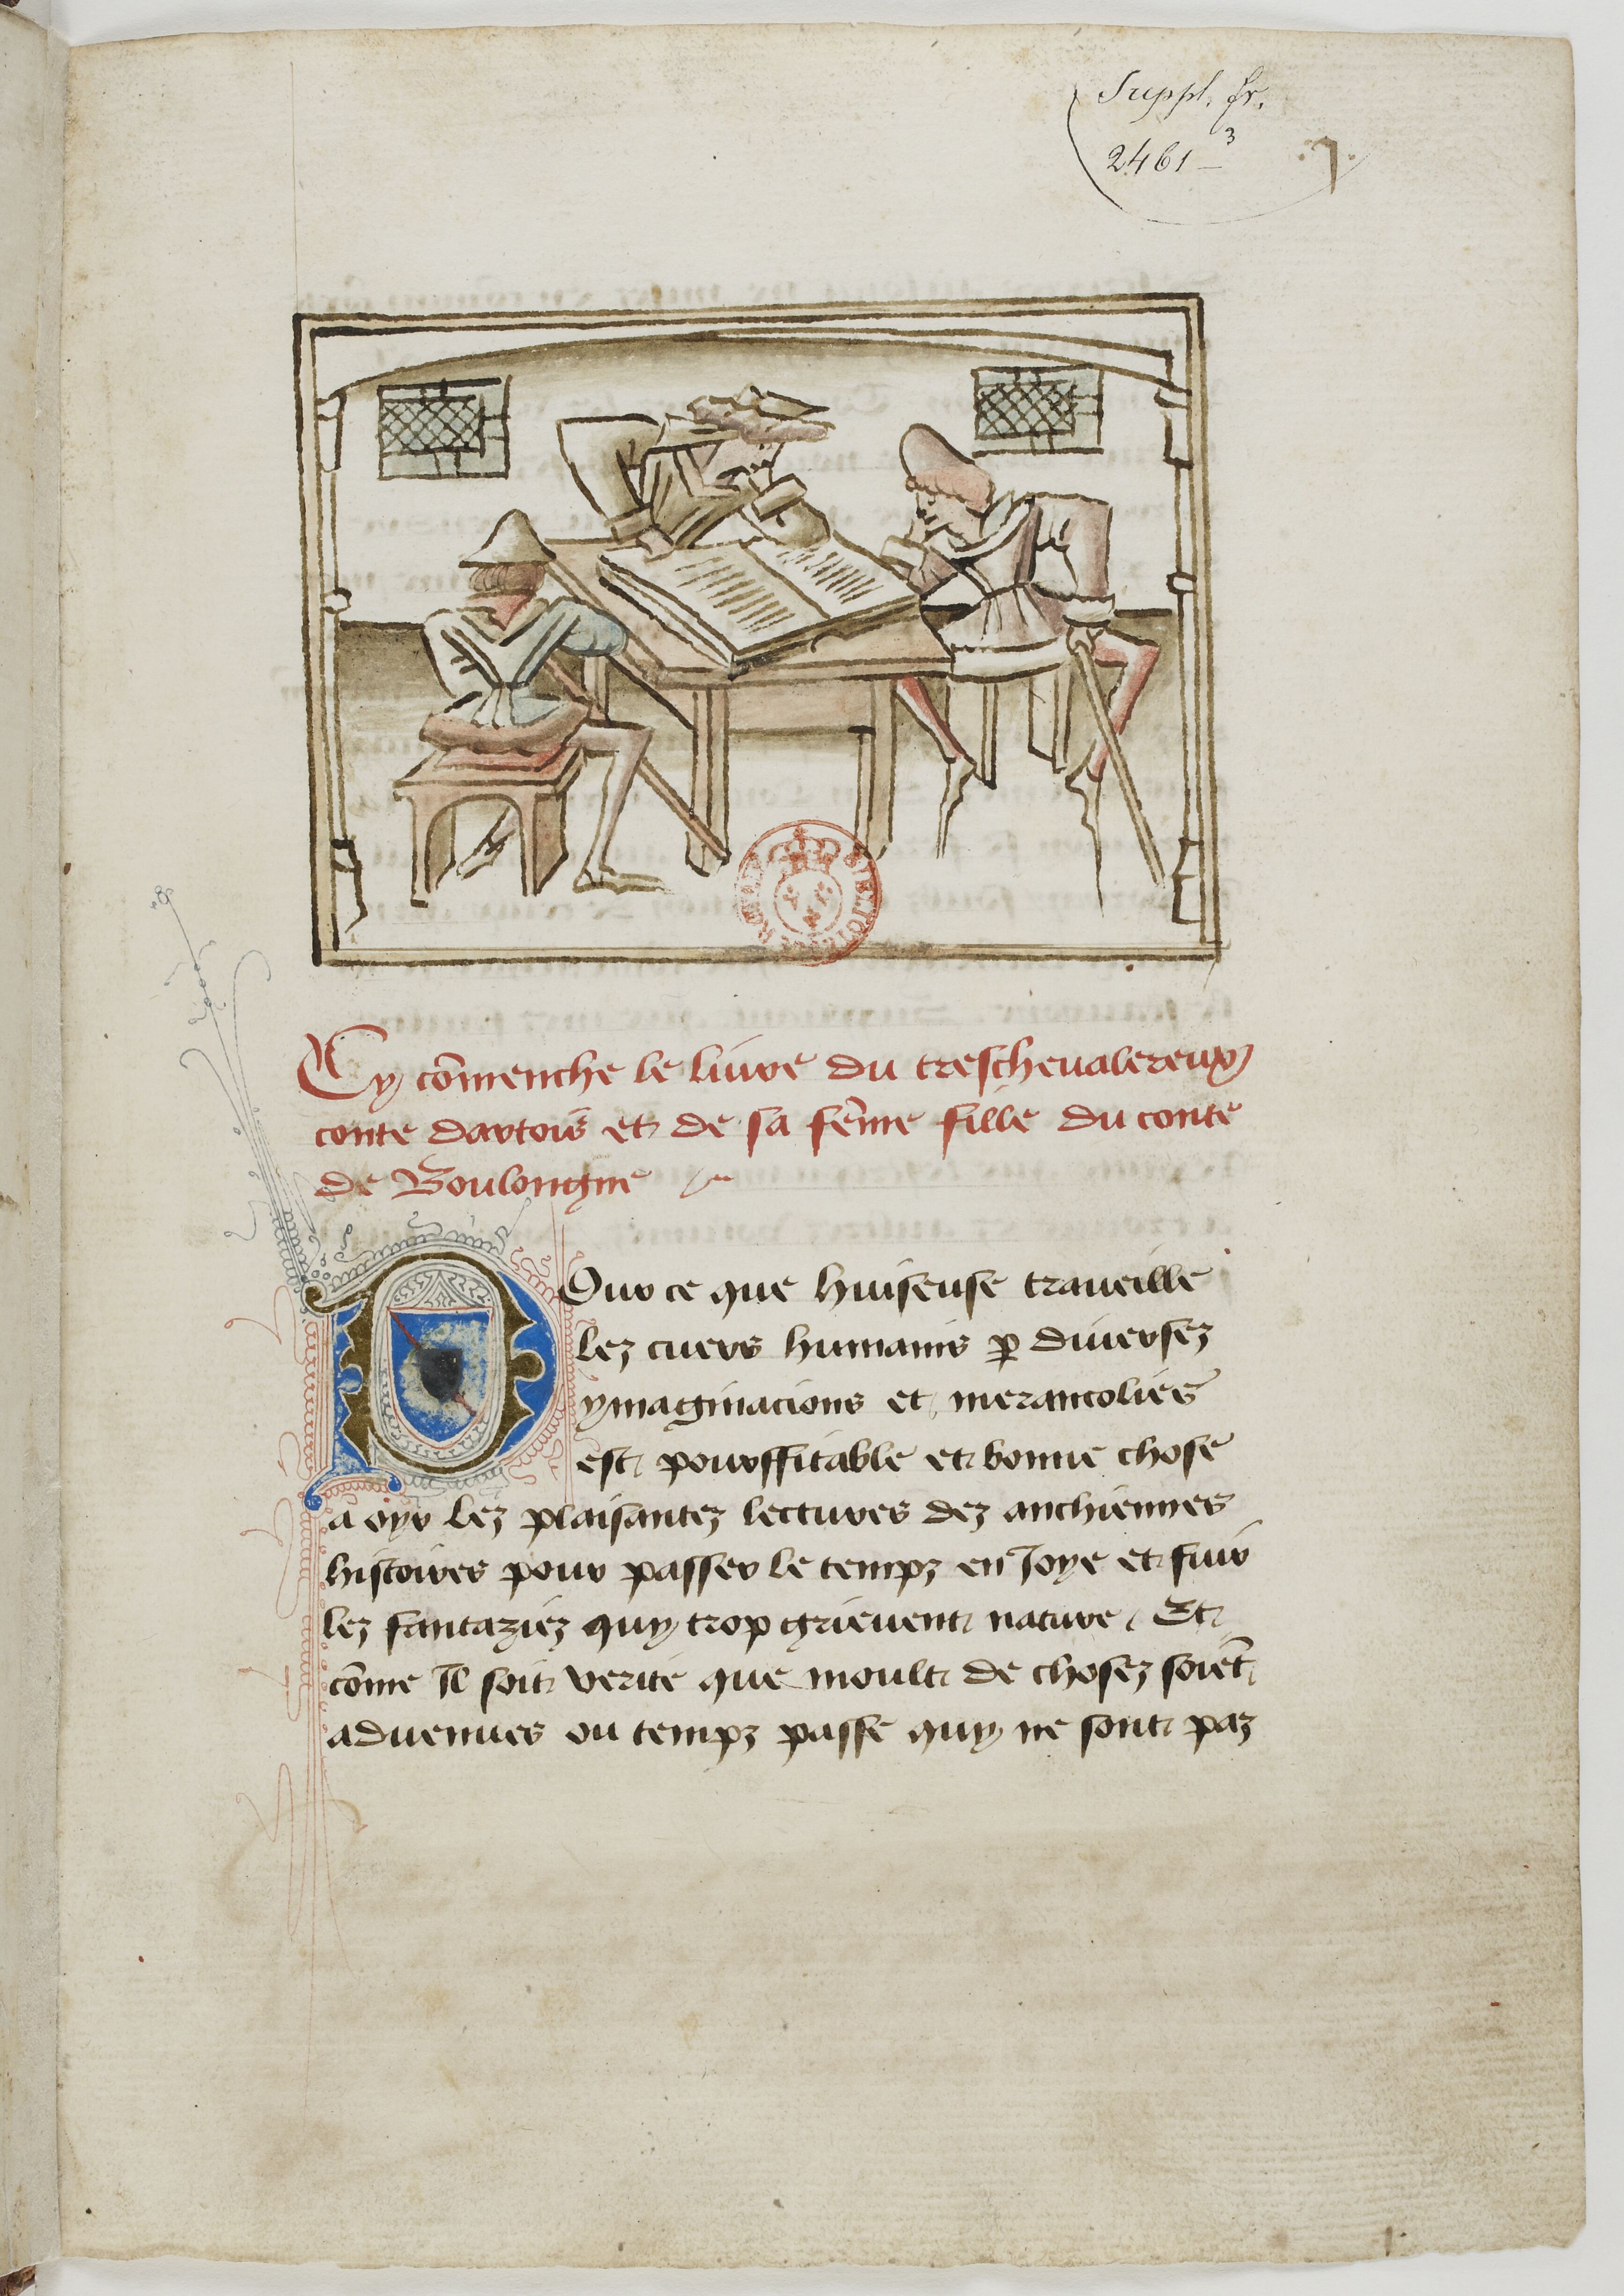 Suppl. fr.
2461-3
.1.
Cy cõmenche le liure du treschevalereux
conte dartois et de sa fẽme fille du conte
de Boulongne
POur ce que huiseuse traueille
lez cuers humains ꝑ diuersez
ymaginacions et merancolies
est pourffitable et bonne chose
a oyr lez plaisantez lectures dez anchiennes
histoires pour passer le tempz en Joye et fuir
lez fantaziez quy trop grieuent nature / Et
cõme Il soit verite que moult de chosez soiẽt
aduenues ou tempz passe quy ne sont paz